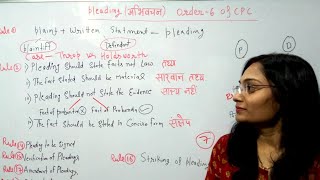 Pleading (अभिवचन) Order-6 of CPC
Rule 1) Plaint + Written Statement — pleading
Plaintiff Defendent
Case - Throp vs Holdsworth
P D
Rule 2) i) Pleading Should State facts not Law तथ्य
ii) The fact Stated Should be material सारवान तथ्य
iii) Pleading Should not State the Evidence साक्ष्य नहीं
Fact of probantia Fact of Probanda
iv) The fact Should be Stated in Concise form संक्षेप
7
Rule 14) Pleading to be Signed
Rule 15) Verification of Pleading
Rule 16) Striking of Pleading
Rule 17) Amendment of Pleading